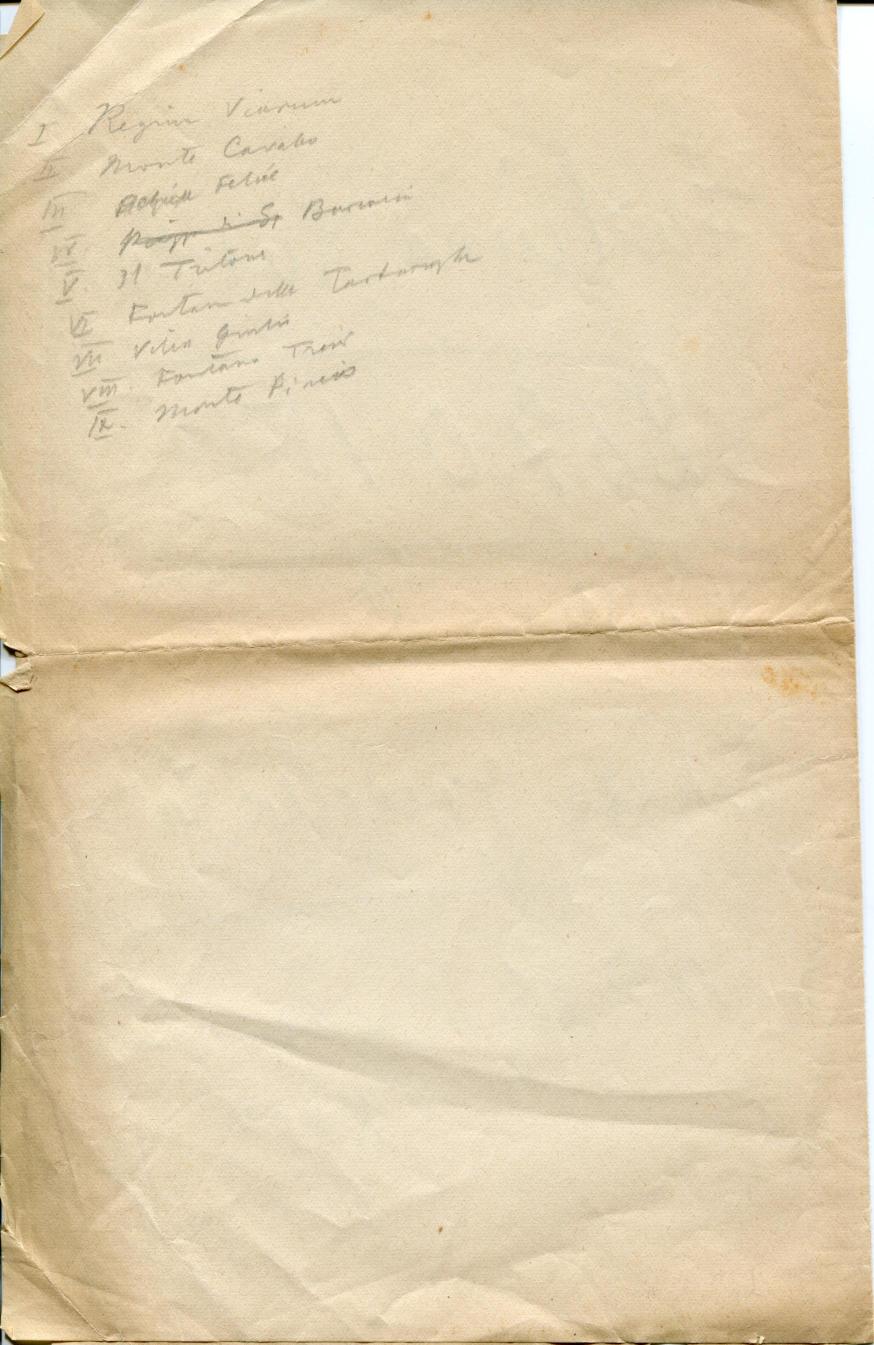 I Regina Viarum
II Monte Cavallo
III Acqua Felice
IV. Piazza di Sp Barcaccia
V. Il Tritone
VI Fontana delle Tartarughe
VII Villa Giulia
VIII. Fontana Trevi
IX. Monte Pincio